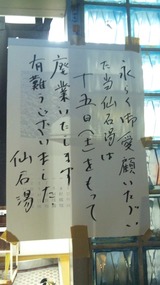 永らく御愛顧いただい
た当仙石湯は
十五日(土)をもって
廃業いたします
有難うございました。
仙石湯